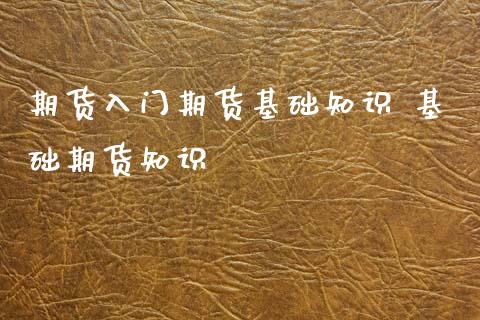 期货入门期货基础知识 基
础期货知识